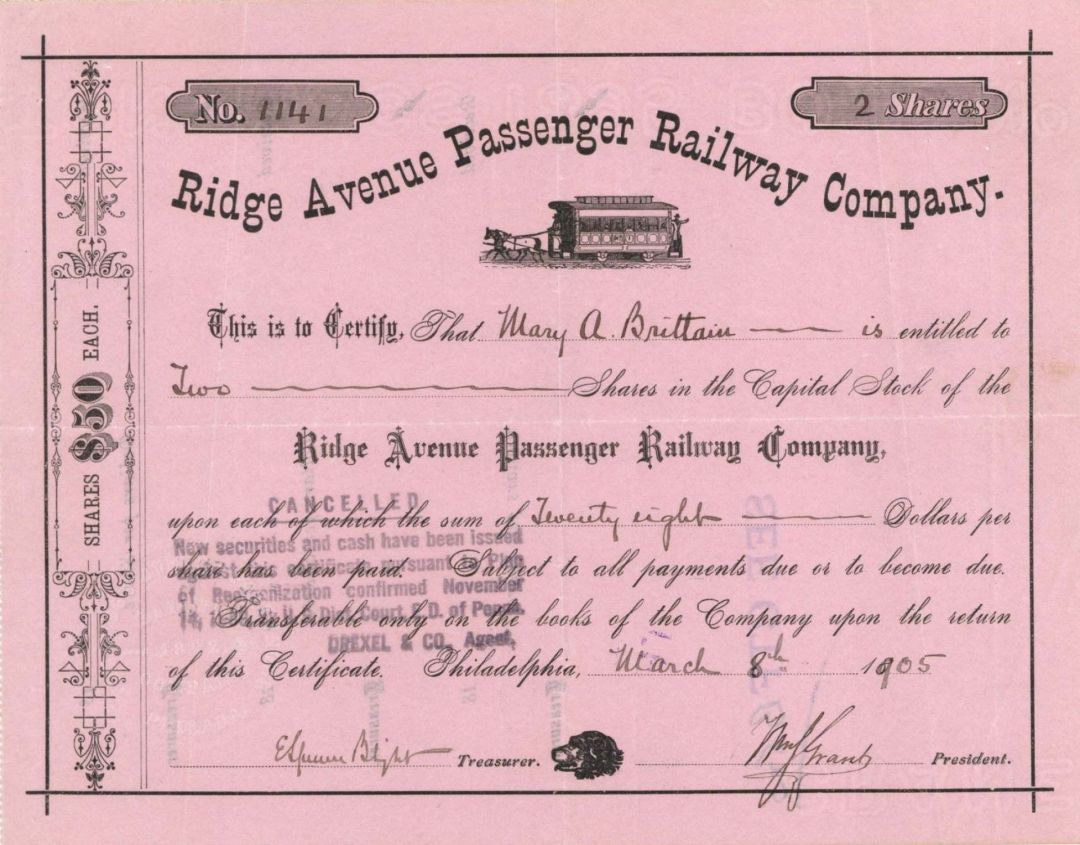 No. 1141
2 Shares
Ridge Avenue Passenger Railway Company.
SHARES $50 EACH.
This is to Certify, That Mary A. Brittain is entitled to
Two Shares in the Capital Stock of the
Ridge Avenue Passenger Railway Company,
CANCELLED
upon each of which the sum of Twenty eight Dollars per
New securities and cash have been issued
share has been paid. Subject to all payments due or to become due.
certificate pursuant to Plan
of Reorganization confirmed November
Transferable only on the books of the Company upon the return
Dist. Court E.D. of Penna.
DREXEL & CO., Agent,
of this Certificate. Philadelphia, March 8th 1905
Treasurer.
President.